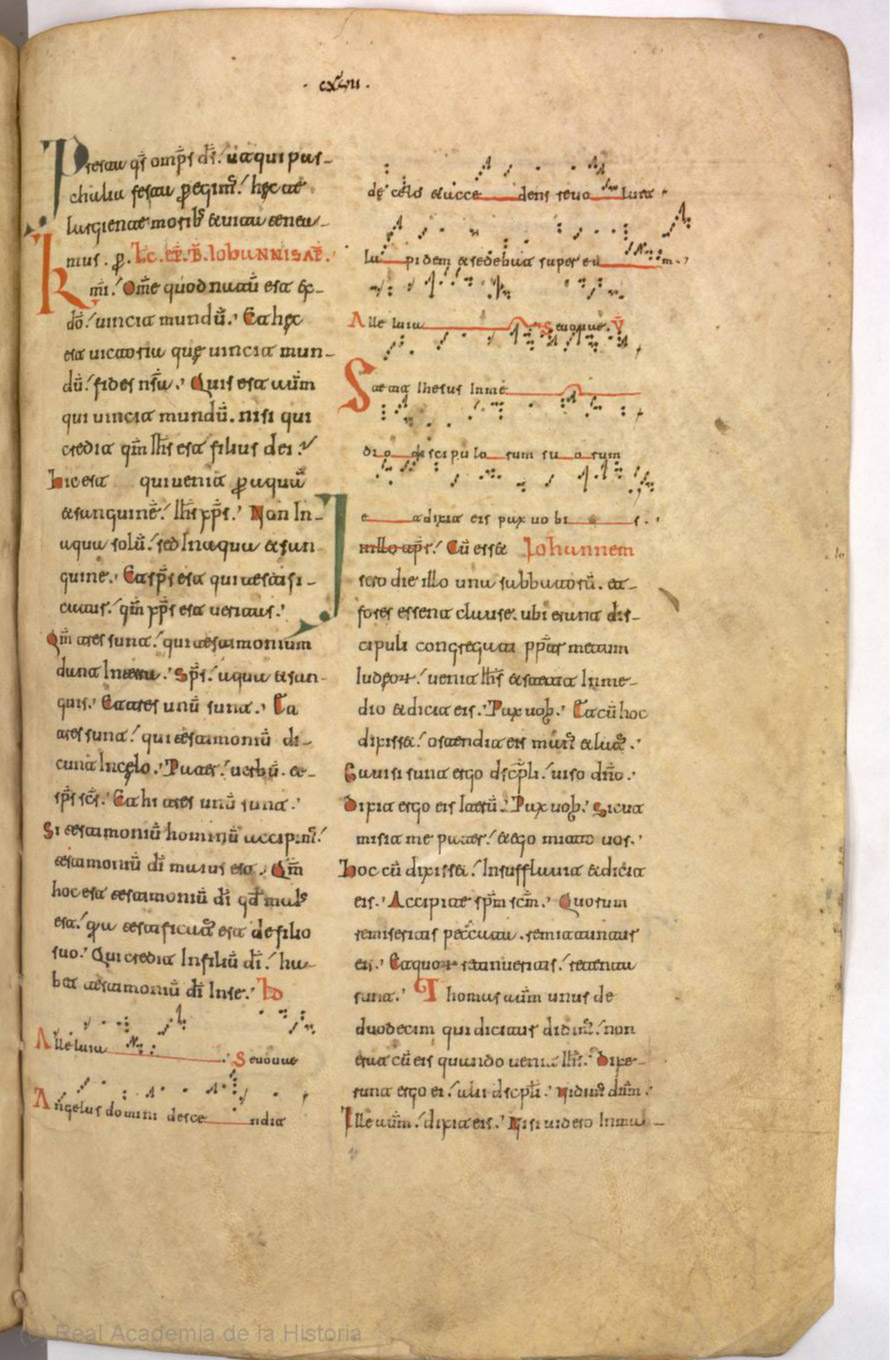 · cxlvii ·
Presta qs omps ds. ut qui pas-
chalia festa peregim. hec te
largiente morib et vita tenea-
mus. p. Lc. ep. B. Iohannis ap.
Kmi. Ome quod natu est ex
do. vincit mundu. Et hec
est victoria que vincit mun-
du. fides nra. Quis est aum
qui vincit mundu. nisi qui
credit qm ihs est filius dei.
Hic est qui venit p aqua
et sanguine. ihs xps. Non in
aqua solu. sed in aqua et san-
guine. Et sps est qui testifi-
catur. qm xps est veritas.
Qm tres sunt. qui testimonium
dant in terra. Sps. aqua et san-
guis. Et tres unu sunt. Et
tres sunt. qui testimoniu di-
cunt in celo. Pater. verbu. et
sps scs. Et hi tres unu sunt.
Si testimoniu hominu accipim.
testimoniu di maius est. Qm
hoc est testimoniu di qd maius
est. qa testificat est de filio
suo. Qui credit in filiu di. ha-
bet testimoniu di in se.
Alleluia Sevovae
Angelus domini descendit
de celo et accedens revolvit
lapidem et sedebat super eum.
Alleluia Sevovae. V
Stetit Ihesus in me
dio discipulorum suorum
et dixit eis pax vobis.
in illo tpr. Cu esset Iohannem
sero die illo una sabbatoru. et
fores essent clause. ubi erant dis-
cipuli congregati ppter metum
Iudeor. venit ihs et stetit in me-
dio et dicit eis. Pax vob. Et cu hoc
dixisset. ostendit eis man et lat.
Gavisi sunt ergo dscpli. viso dno.
Dixit ergo eis iteru. Pax vob. Sicut
misit me pater. et ego mitto vos.
Hoc cu dixisset. Insufflavit et dicit
eis. Accipite spm scm. Quorum
remiseritis peccata. remittuntur
eis. Et quor retinueritis. retenta
sunt. Thomas aum unus de
duodecim qui dicitur didim. non
erat cu eis quando venit ihs. Dixe-
runt ergo ei. alii dscpli. Vidim dnm.
Ille aum. dixit eis. Nisi videro in man
(c) Real Academia de la Historia